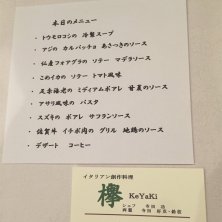 本日のメニュー
・トウモロコシの 冷製スープ
・アジの カルパッチョ あさつきのソース
・仏産フォアグラの ソテー マデラソース
・このイカの ソテー トマト風味
・天然海老の ミディアムポアレ 甘夏のソース
・アサリ風味の パスタ
・スズキの ポアレ サフランソース
・佐賀牛 イチボ肉の グリル 地鶏のソース
・デザート コーヒー
イタリアン創作料理
欅
KeYaKi
シェフ 寺田
寺田